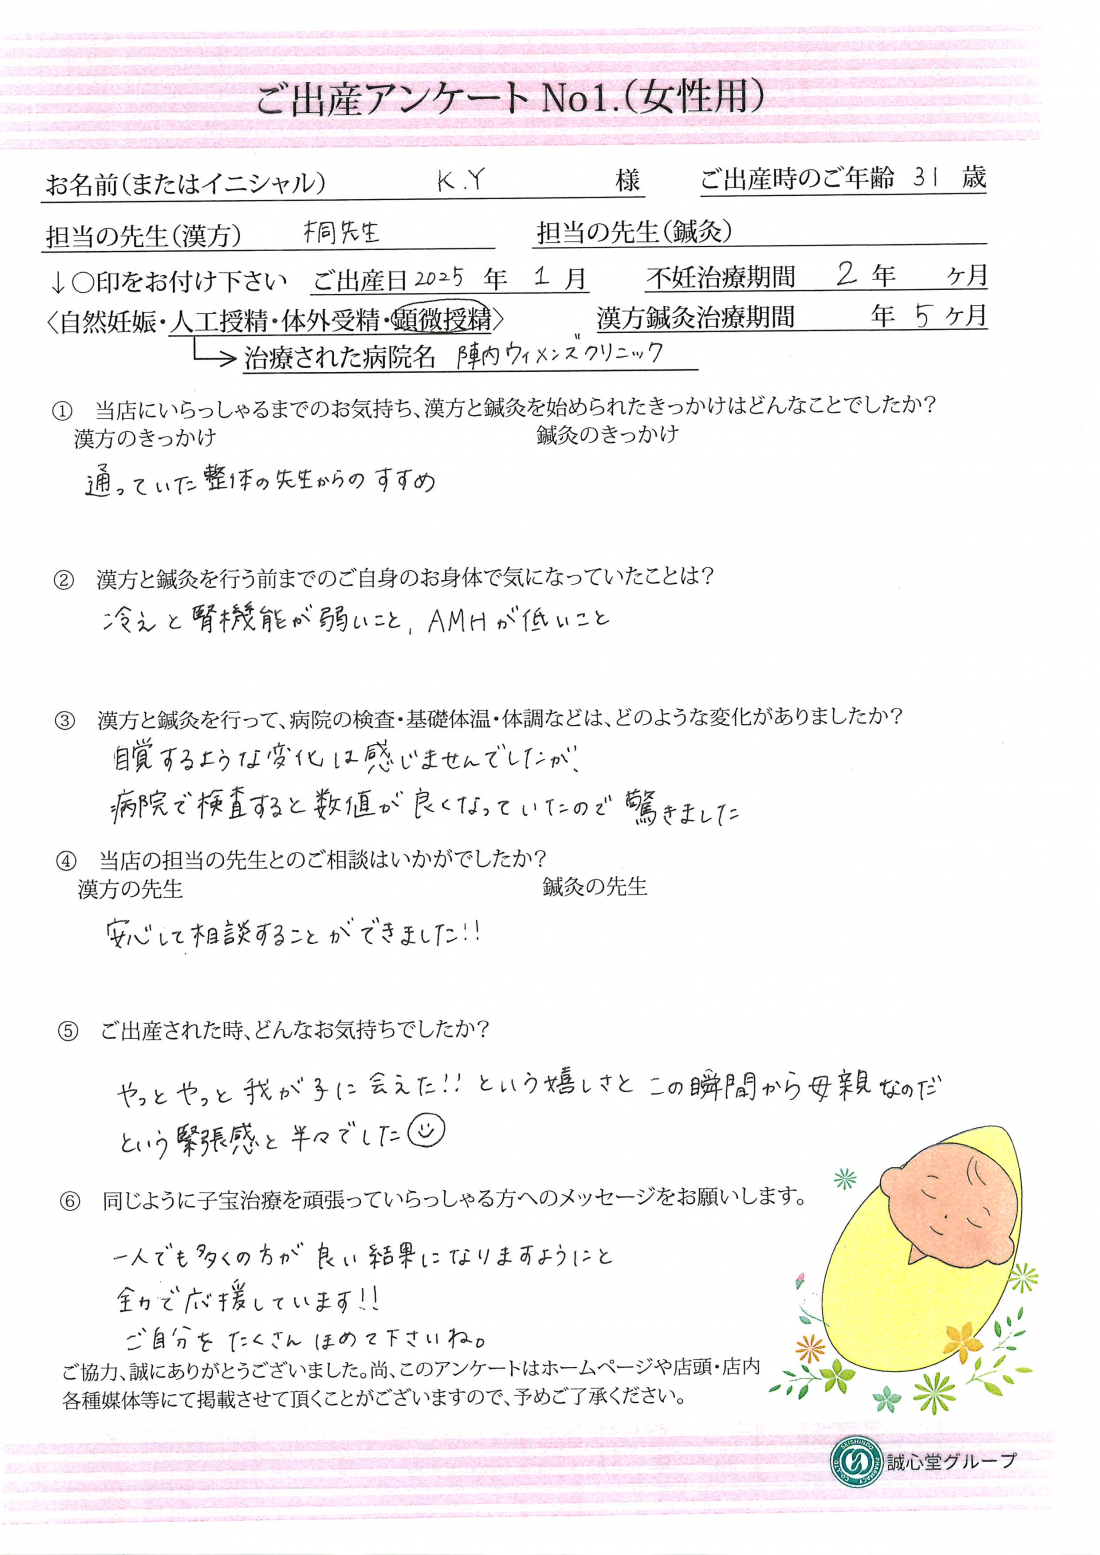 ご出産アンケート No1.(女性用)
お名前(またはイニシャル) K.Y 様 ご出産時のご年齢 31 歳
担当の先生(漢方) 桐先生 担当の先生(鍼灸)
↓○印をお付け下さい ご出産日 2025 年 1 月 不妊治療期間 2 年 ヶ月
〈自然妊娠・人工授精・体外受精・顕微授精〉 漢方鍼灸治療期間 年 5 ヶ月
治療された病院名 陣内ウィメンズクリニック
① 当店にいらっしゃるまでのお気持ち、漢方と鍼灸を始められたきっかけはどんなことでしたか?
漢方のきっかけ 鍼灸のきっかけ
通っていた整体の先生からのすすめ
② 漢方と鍼灸を行う前までのご自身のお身体で気になっていたことは?
冷えと腎機能が弱いこと、AMHが低いこと
③ 漢方と鍼灸を行って、病院の検査・基礎体温・体調などは、どのような変化がありましたか?
自覚するような変化は感じませんでしたが、
病院で検査すると数値が良くなっていたので驚きました
④ 当店の担当の先生とのご相談はいかがでしたか?
漢方の先生 鍼灸の先生
安心して相談することができました!!
⑤ ご出産された時、どんなお気持ちでしたか?
やっとやっと我が子に会えた!!という嬉しさとこの瞬間から母親なのだ
という緊張感と半々でした☺
⑥ 同じように子宝治療を頑張っていらっしゃる方へのメッセージをお願いします。
一人でも多くの方が良い結果になりますようにと
全力で応援しています!!
ご自分をたくさんほめて下さいね。
ご協力、誠にありがとうございました。尚、このアンケートはホームページや店頭・店内
各種媒体等にて掲載させて頂くことがございますので、予めご了承ください。
SEISHINDO PHARMACY CO.LTD.
誠心堂グループ